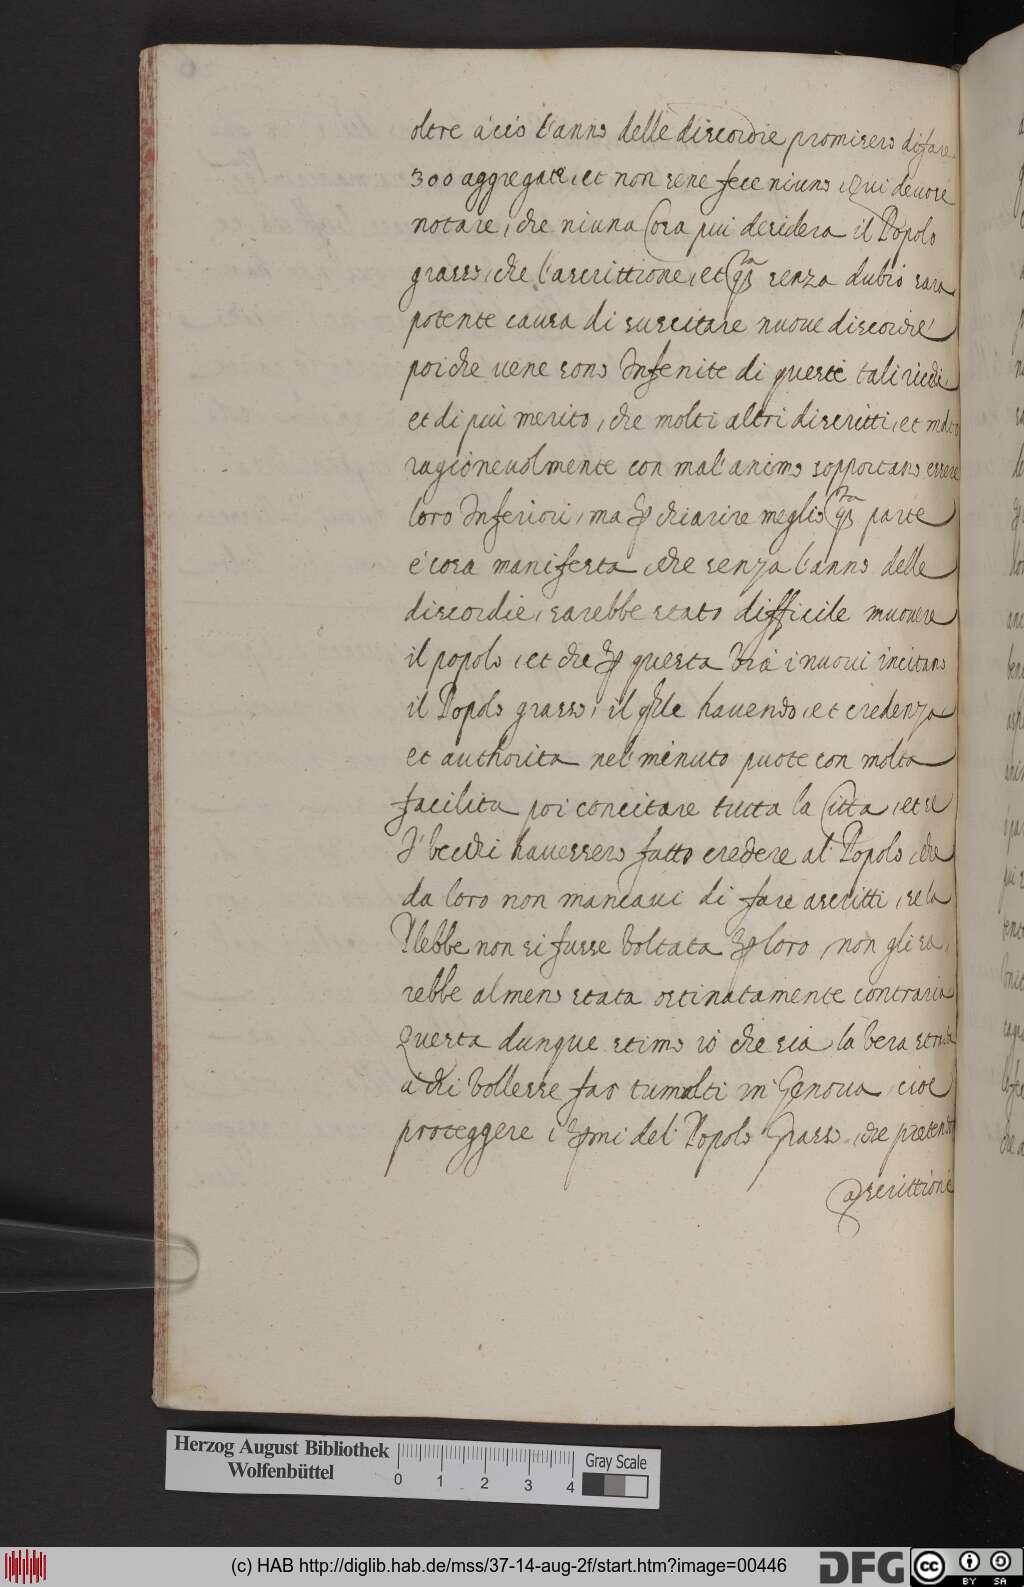 oltre a ciò l'anno delle discordie promisero di fare
300 aggregati, et non se ne fece niuno, Qui devesi
notare, che niuna Cosa piu desidera il Popolo
grasso, che l'ascrittione, et q.sta senza dubio sara
potente causa di suscitare nuove discordie
poiche vene sono Infenite di questi tali richi,
et di piu merito, che molti altri discritti, et molto
ragionevolmente con mal'animo sopportano essere
loro Inferiori, ma per chiarire meglio q.sta parte
è cosa manifesta, che senza l'anno delle
discordie, sarebbe stato difficile muovere
il popolo, et che per questa via i nuovi incitano
il Popolo grasso, il q.le havendo, et credenza,
et authorita nel minuto puote con molta
facilita poi concitare tutta la Citta, et se
I vecchi havessero fatto credere al Popolo, che
da loro non mancavi di fare ascritti, se la
Plebbe non si fusse voltata per loro, non gli sa,
rebbe almeno stata ostinatamente contraria
Questa dunque stimo io che sia la vera strada
a chi vollesse far tumulti in Genova, cioe
proteggere i p.mi del Popolo Grasso, che pretend
ascrittione
Herzog August Bibliothek
Wolfenbüttel
0 1 2 3 4
Gray Scale
(c) HAB http://diglib.hab.de/mss/37-14-aug-2f/start.htm?image=00446
DFG
cc BY SA